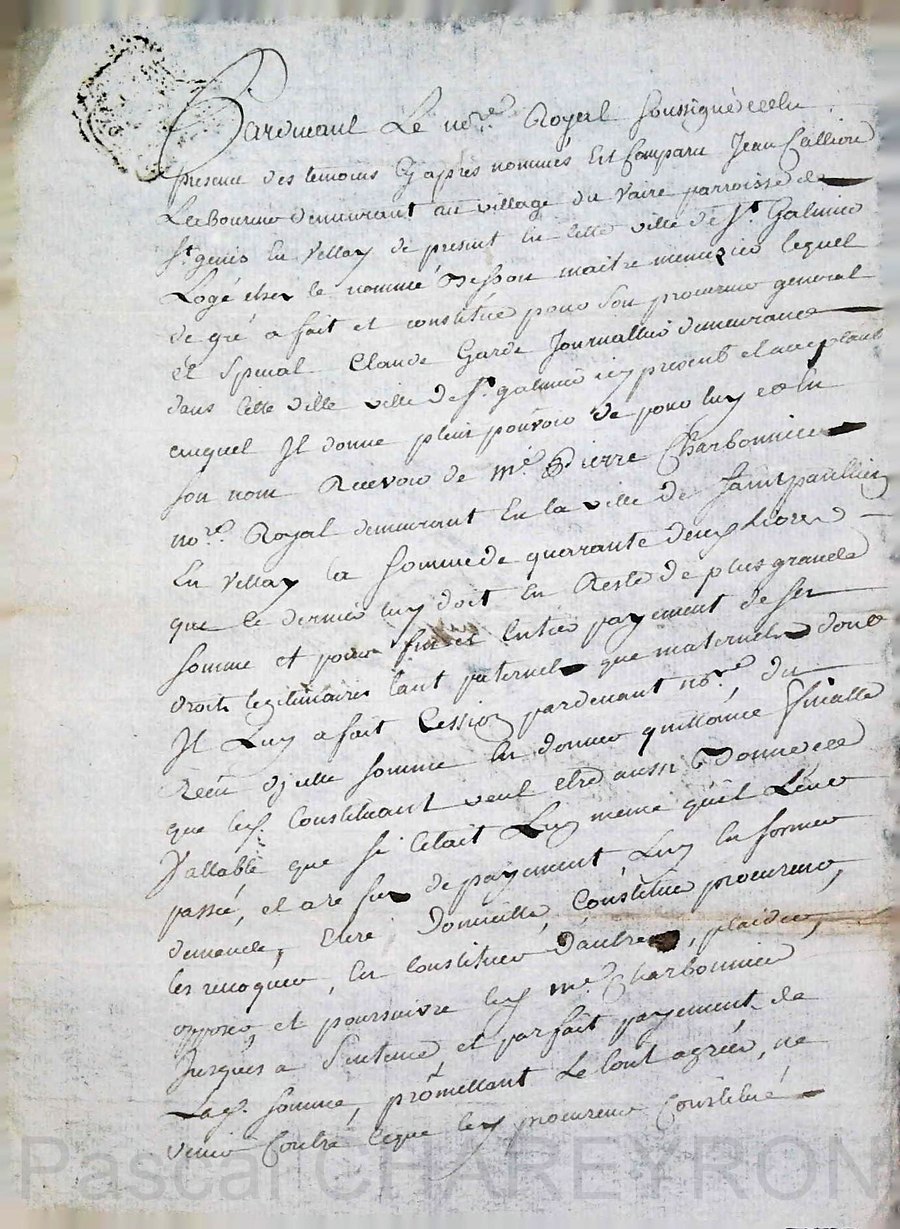 Pardevant Le no.re Royal soussigné et En
presence des temoins Cy apres nommés Est Comparu Jean Calliore
Laboureur demeurant au village du Vaire parroisse de
St. genis En Vellay de present En Cette ville de St. Galmier
Logé chez le nommé maitre menuzier lequel
de gré a fait et constitué pour son procureur general
et Special Claude Garde Journallier demeurant
dans Cette Ville ville de St. galmier icy present et acceptant
auquel Il donne plein pouvoir de pour luy et En
son nom Recevoir de me. Pierre Charbonnier
no.re Royal demeurant En la ville de Saintpaullien
En Vellay la Somme de quarante deux livres
que le dernier luy doit En Reste de plus grande
somme et pour fin et Entier payement de ses
droits legitimaires tant paternels que maternels dont
Il Luy a fait Cession pardevant no.re du
Recu d'jcelle somme En donner quittance finalle
que led. Constituant veut etre aussi Bonne et
Vallable que si C'etait Luy meme qu'il L'eut
passée, et a refus de payement Luy En former
demande, Elire Domicille, Constituer procureur,
les revoquer, En Constituer d'autres, plaider,
opposer, et poursuivre led. me. Charbonnier
Jusques a Sentence et parfait payement de
Lad. somme, promettant Le tout agréer, ne
venir Contre Ceque led. procureur Constitué
Pascal CHAREYRON